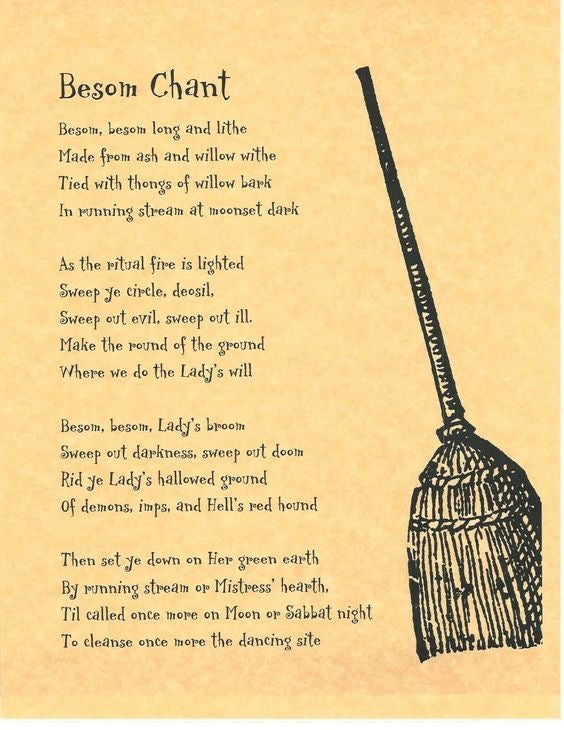 Besom Chant
Besom, besom long and lithe
Made from ash and willow withe
Tied with thongs of willow bark
In running stream at moonset dark
As the ritual fire is lighted
Sweep ye circle, deosil,
Sweep out evil, sweep out ill.
Make the round of the ground
Where we do the Lady's will
Besom, besom, Lady's broom
Sweep out darkness, sweep out doom
Rid ye Lady's hallowed ground
Of demons, imps, and Hell's red hound
Then set ye down on Her green earth
By running stream or Mistress' hearth,
Til called once more on Moon or Sabbat night
To cleanse once more the dancing site